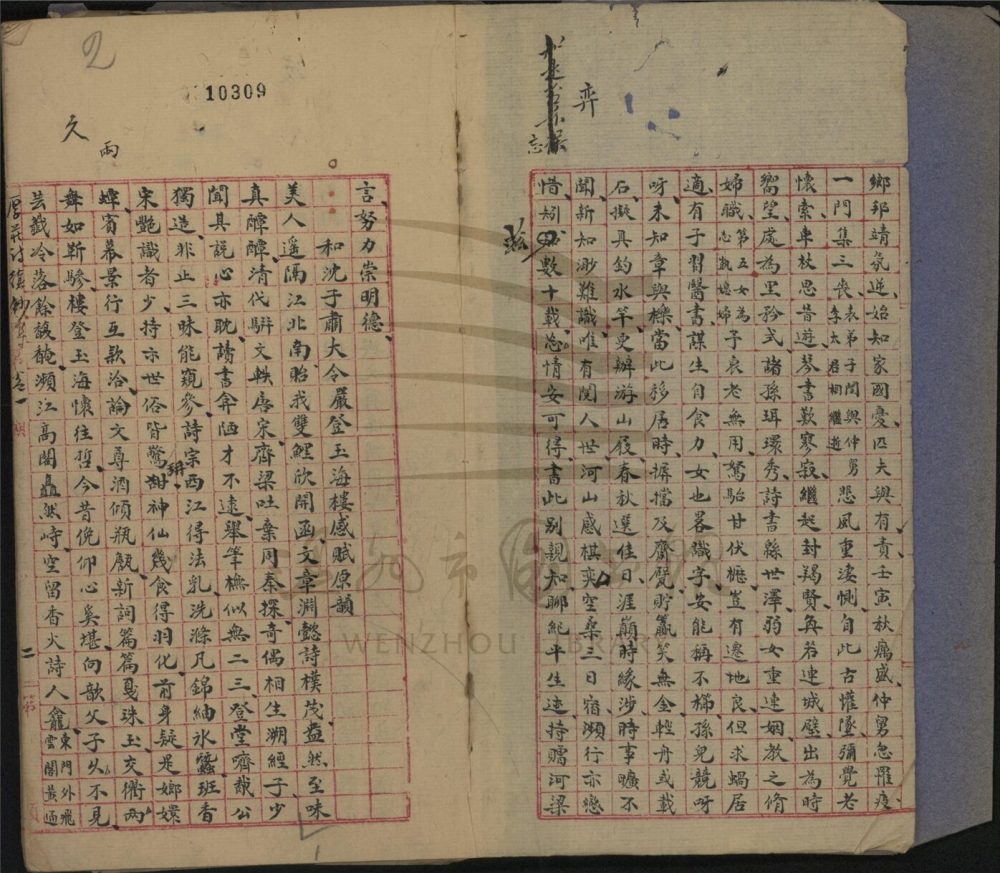 弈
鄉邦靖氛逆始知家國憂匹夫與有責壬寅秋癘盛仲舅忽罹疫
一門集三喪表弟子閏與仲舅李太君相繼逝悲風重淒惻自此古懽墜彌覺若
懷索車杖思昔遊琴書歎寥寂繼起封羯賢奐若連城璧出為時
嚮望處為里矜式諸孫珥環秀詩書緜世澤弱女重連姻教之脩
婦職第五女為志執媳婦子哀老無用駑駘甘伏櫪豈有遷地良但求蝸居
適有子習醫書謀生自食力女也畧識字安能稱不櫛孫兒競呀
呀未知章與櫟當此移居時摒擋及齋甓貯籯笑無金輕舟或載
石擬具釣水竿更辦游山屐春秋選佳日涯巔時緣涉時事曠不
聞新知渺難識唯有閱人世河山感棋奕空桑三日宿瀕行亦戀
惜矧數十載忽情安可得書此別親知聊紀平生迹持贈河梁
茲
忘
10309
2
久
雨
言努力崇明德
和沈子肅大令嚴登玉海樓感賦原韻
美人遥隔江北南貽我雙鯉欣開函文章淵懿詩樸茂盎然至味
真醰醰清代駢文軼唐宋齊梁吐棄周秦探奇偶相生溯經子少
聞其説心亦耽讀書弇陋才不遠舉筆橅似無二三登堂嚌胾公
獨造非止三昧能窺參詩宗西江得法乳洗滌凡錦紬氷蠶班香
宋艷識者少持示世俗皆驚神仙幾食得羽化前身疑是嫏嬛
蟫賓幕景行互款洽論文尊酒傾瓶甔新詞篇篇戛珠玉交衢兩
舞如靳驂樓登玉海懷往哲今昔俛仰心奚堪向歆父子久不見
芸籤冷落餘馥馣瀕江高閣矗然峙空留香火詩人龕東門外飛雲閣黄通
二
WENZHOU LIBRARY